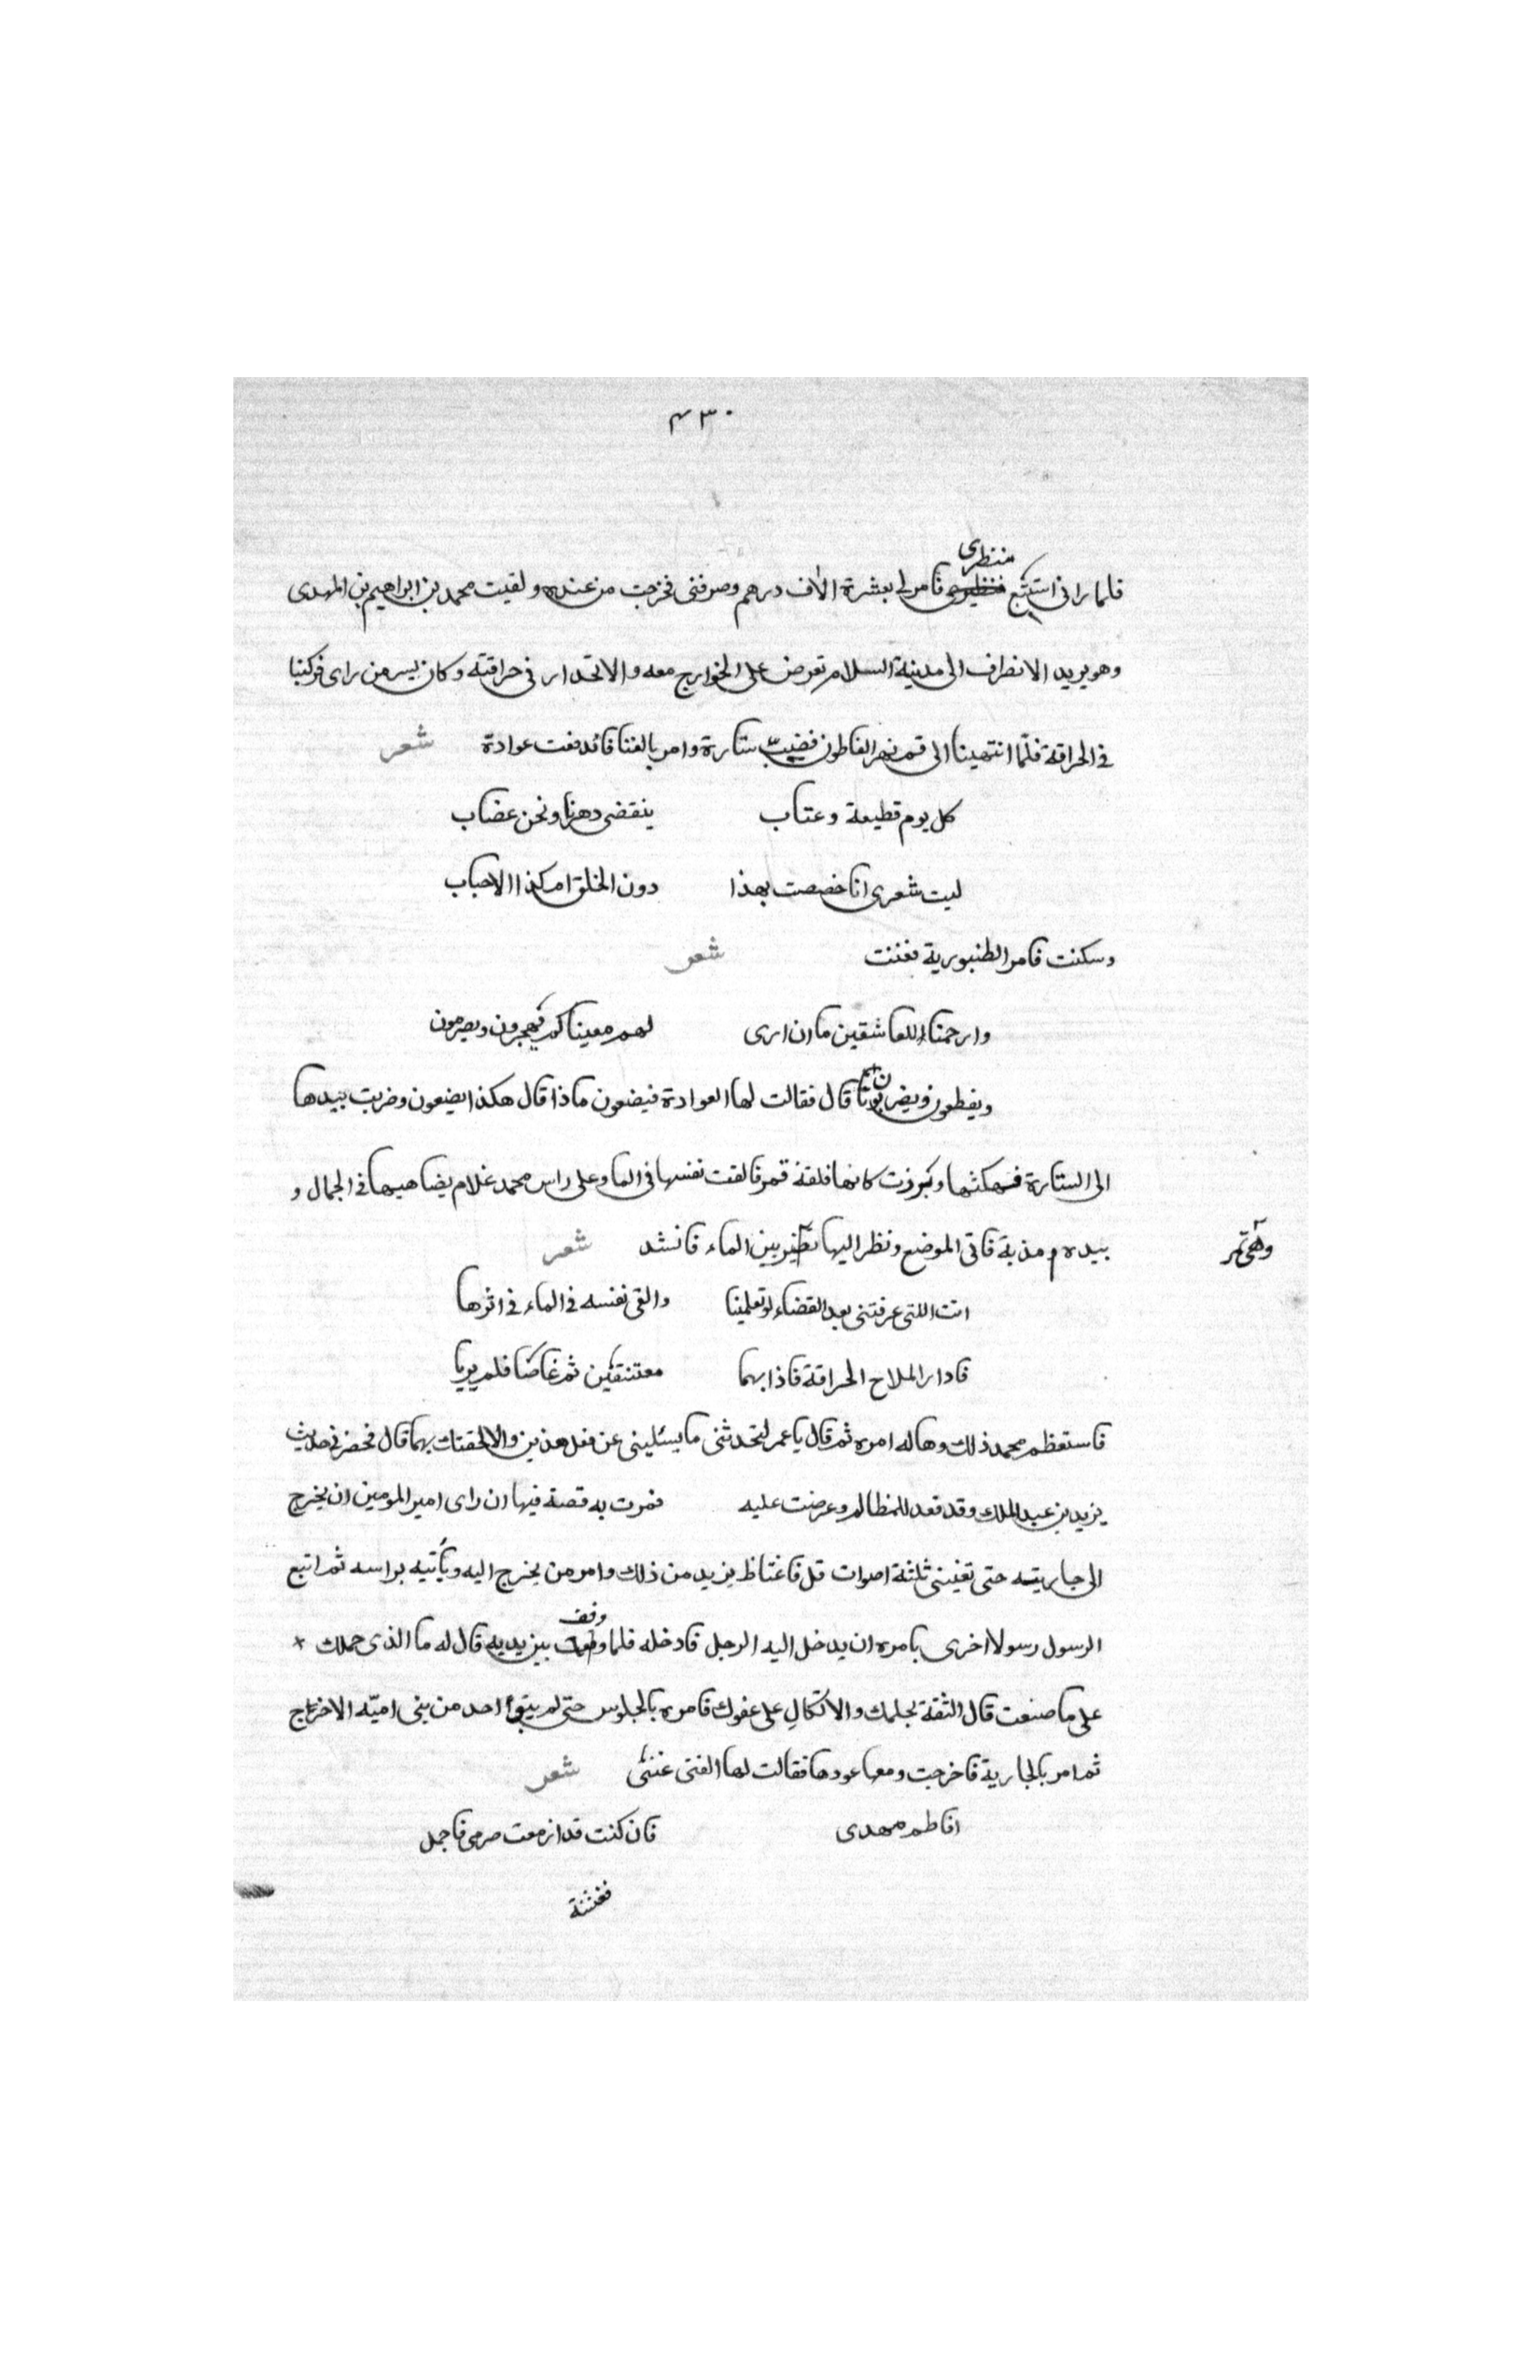 ٤٣٠
منظرى
فلما رانى استبشع فامر لى بعشرة الاف درهم وصرفنى فخرجت من عنده ولقيت محمد بن ابراهيم بن المهدى
وهو يريد الانصراف الى مدينة السلام تعرض على الخوارج معه والانحدار فى حراقته وكان بسر من راى فركبنا
فى الحراقة فلما انتهينا الى فم نهر القاطون فضيب ستارة وامر بالغنا فاندفعت عوادة شعر
كل يوم قطيعة وعتاب ينقضى دهرنا ونحن غضاب
ليت شعرى انا خصصت بهذا دون الخلق ام كذا الاحباب
وسكنت فامر الطنبورية فغنت شعر
وارحمناء للعاشقين ما ان ارى لهم معينا كم يهجرون ويصرمون
ويقطعون ويضربون قال فقالت لها العوادة فيضعون ماذا قال هكذا يضيعون وضربت بيدها
الى الستارة فهتكتها وبرزت كانها فلقة قمر فالقت نفسها فى الما وعلى راس محمد غلام يضاهيها فى الجمال و
بيده مذبة فاتى الموضع ونظر اليها بين الماء فانشد شعر
وهى تمر
انت اللتى عرفتنى بعد القضاء لو تعلمينا والقى نفسه فى الماء فى اثرها
فادار الملاح الحراقة فاذا بهما معتنقين ثم غاصا فلم يريا
فاستعظم محمد ذلك وهاله امره ثم قال يا عمر لتحدثنى ما يسلينى عن فعل هذين والا الحقتك بهما قال فحضرنى حديث
يزيد بن عبد الملك وقد قعد للمظالم وعرضت عليه فمرت به قصة فيها ان راى امير المومنين ان يخرج
الى جاريته حتى تغنينى ثلثة اصوات قل فاغتاظ يزيد من ذلك وامر من يخرج اليه وياتيه براسه ثم اتبع
وقف
الرسول رسولا اخرى بامره ان يدخل اليه الرجل فادخله فلما بين يديه قال له ما الذى حملك
على ما صنعت قال الثقة بحلمك والاتكال على عفوك فامره بالجلوس حتى لم يبق احد من بنى امية الا خرج
ثم امر بالجارية فاخرجت ومعها عودها فقالت لها الفتى غننى شعر
افاطم مهدى فان كنت قد ازمعت صرمى فاجمل
فغنته